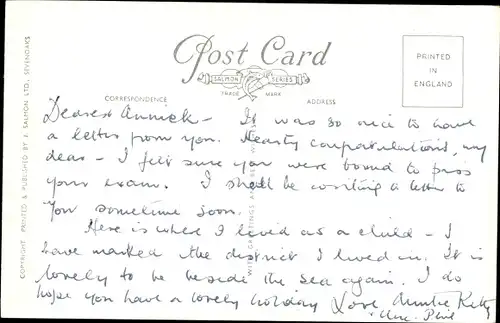 Post Card
SALMON SERIES
TRADE MARK
CORRESPONDENCE
ADDRESS
PRINTED
IN
ENGLAND
COPYRIGHT PRINTED & PUBLISHED BY J. SALMON LTD., SEVENOAKS
Dearest Annick - It was so nice to have
a letter from you. Hearty congratulations, my
dear - I felt sure you were bound to pass
your exam. I shall be writing a letter to
you sometime soon.
Here is where I lived as a child - I
have marked the district I lived in. It is
lovely to be beside the sea again. I do
hope you have a lovely holiday Love Auntie Kitty
+ Unc. Phil
WITH GREETINGS AND